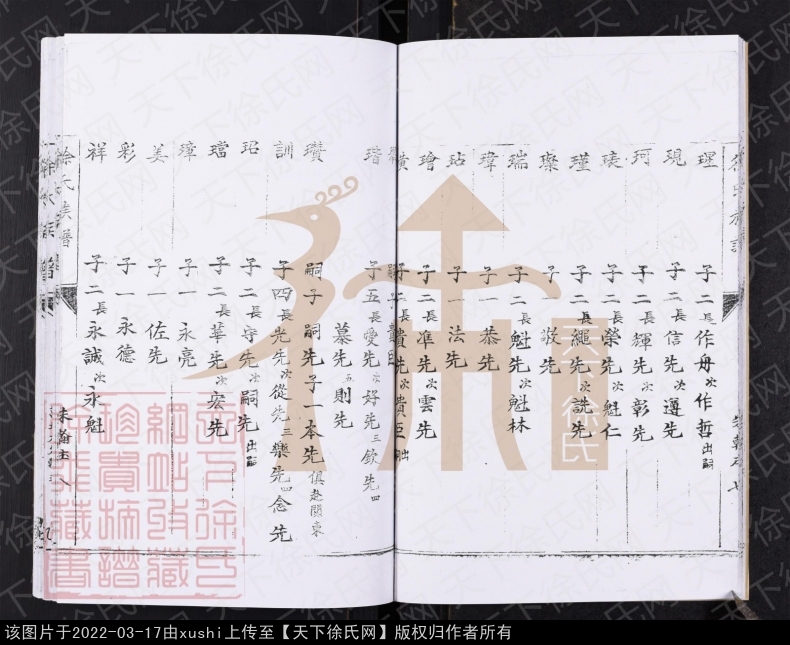 理 子二長作舟次作哲出嗣
現 子二長信先次遵先
珂 子二長輝先次彰先
表 子二長榮先次魁仁
瑾 子二長繩先次詵先
璨 子一敬先
瑞 子二長魁先次魁林
瑋 子一恭先
玷 子一法先
璯 子二長準先次雲先
璜
瑎 子五長愛先次好先三欽先四
慕先五則先
瓚 嗣子嗣先子一本先俱赴關東
訓 子四長光先次從先三樂先四念先
玿 子二長守先次嗣先出嗣
璫 子二長華先次宏先
璋 子一永亮
姜 子一佐先
彩 子一永德
祥 子二長永誠次永魁
徐氏族譜
天下徐氏
天下徐氏网
该图片于2022-03-17由xushi上传至【天下徐氏网】版权归作者所有